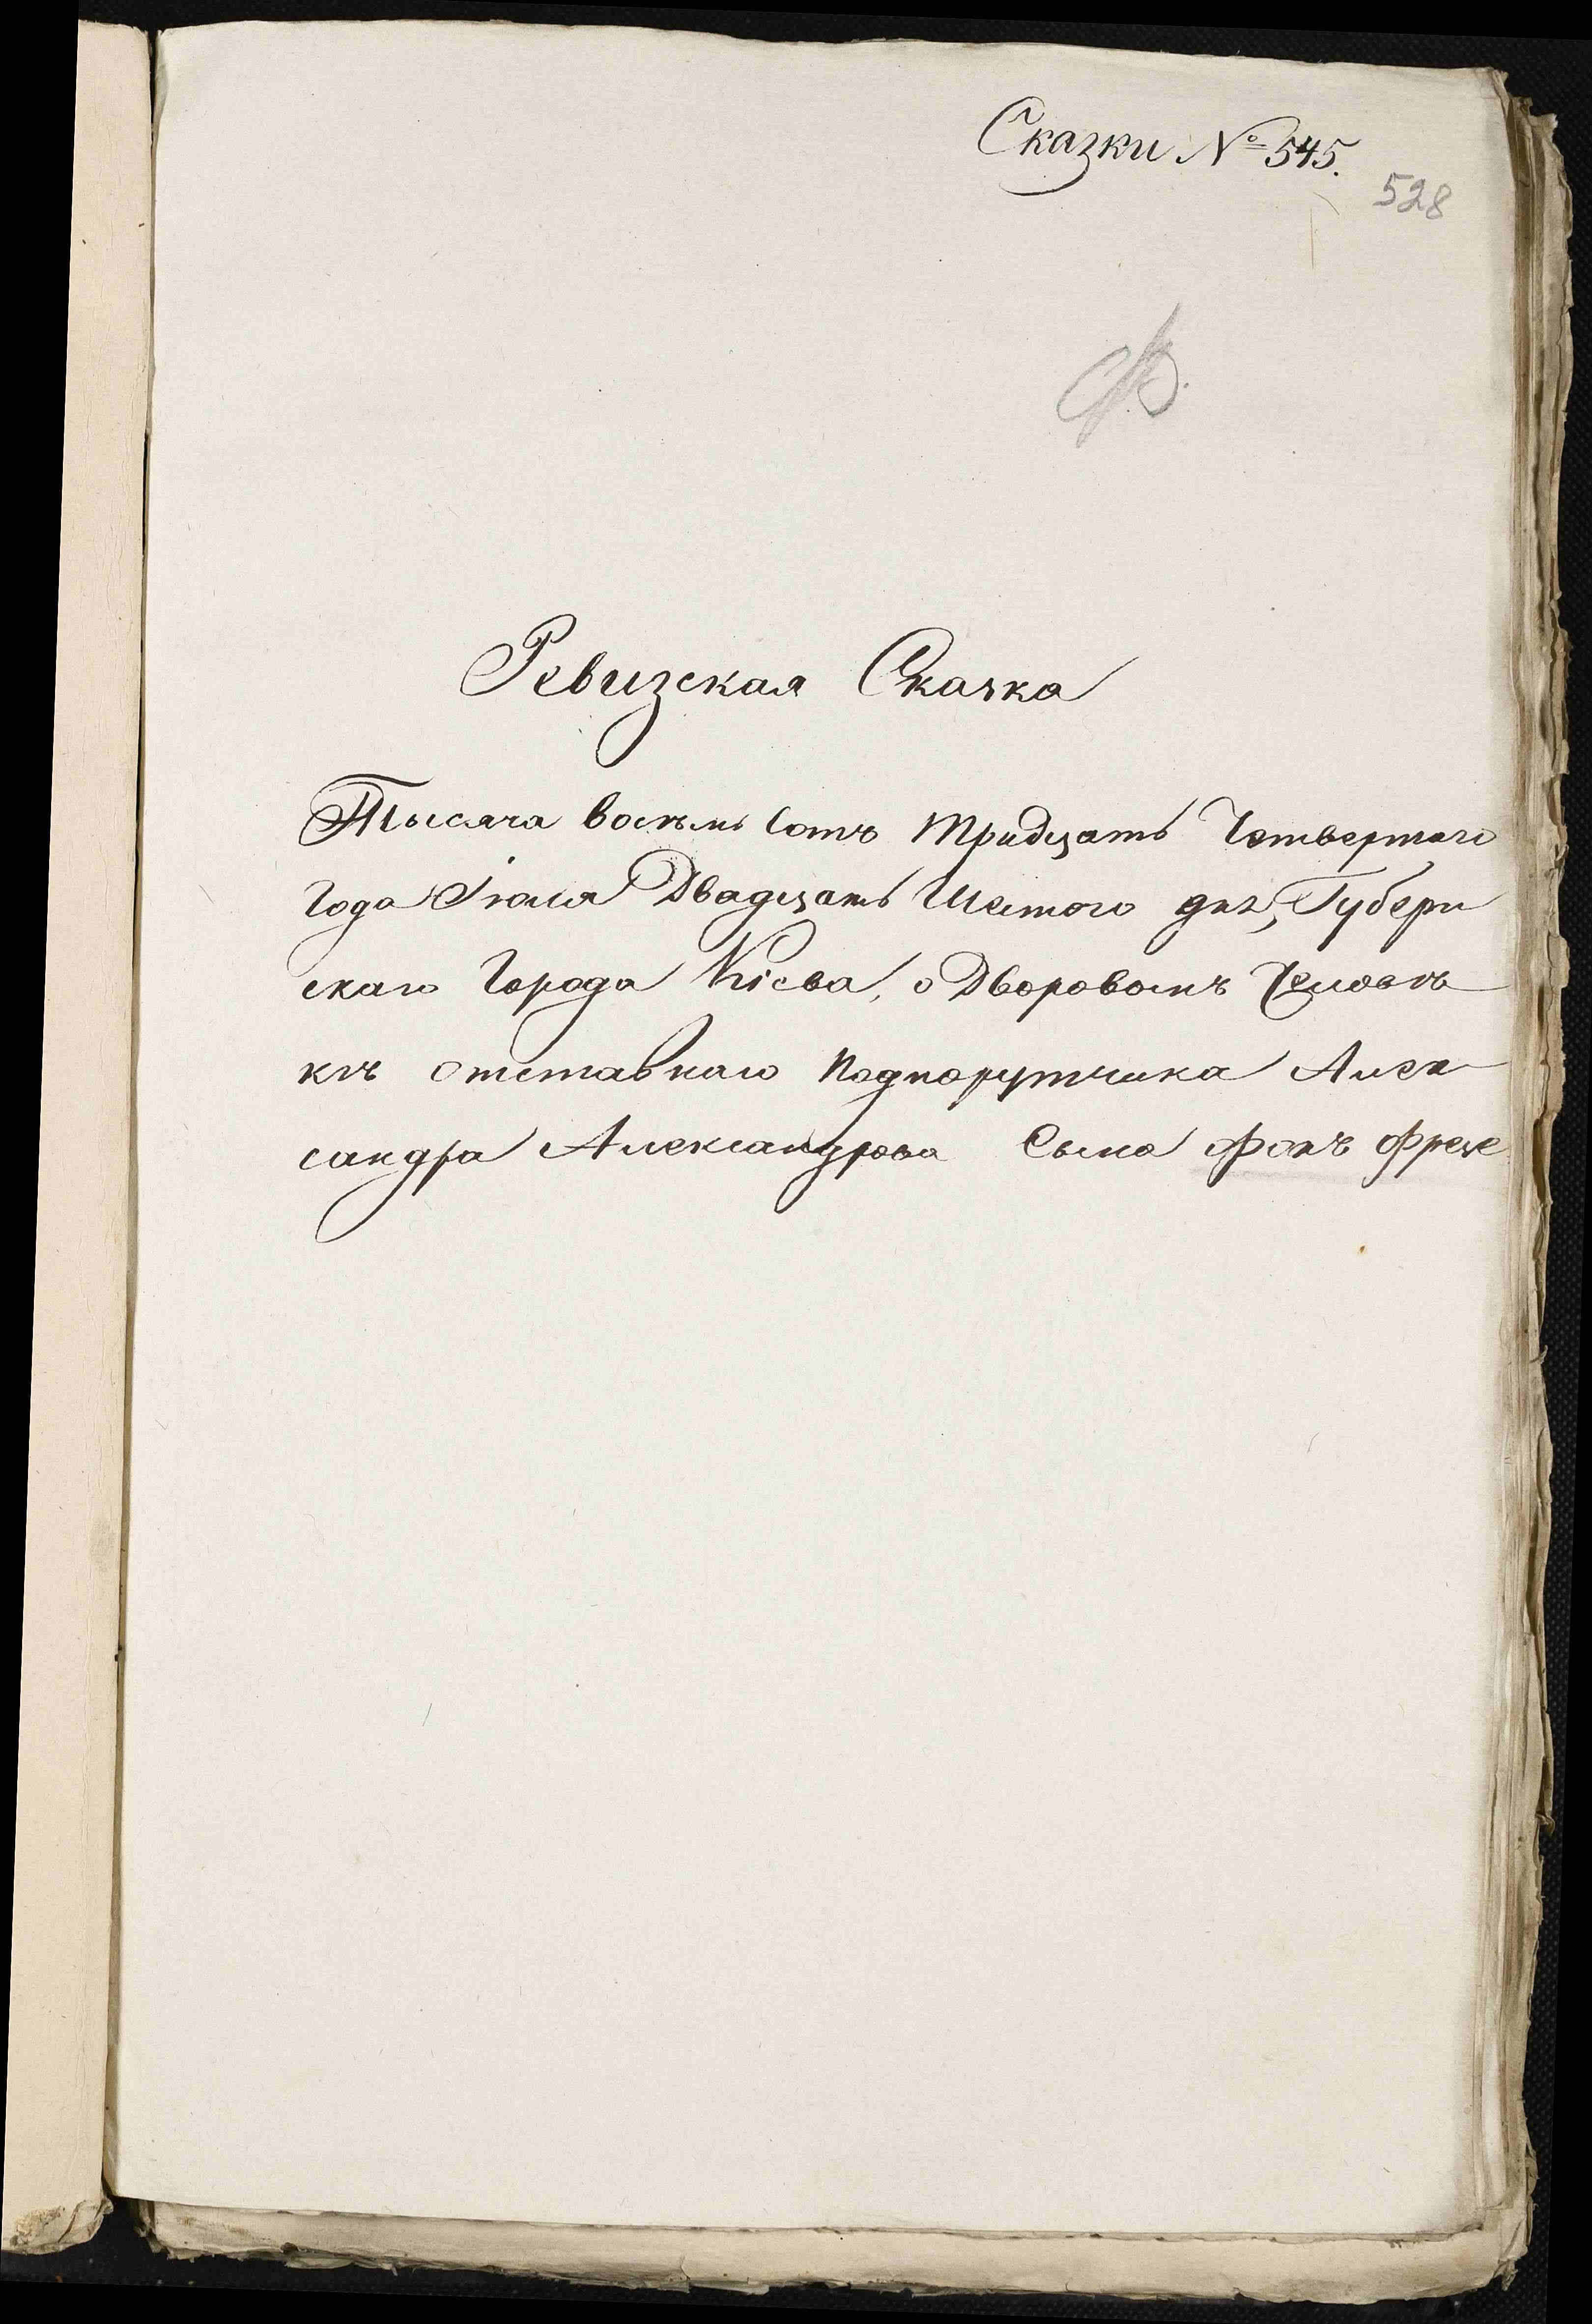 Сказки № 545.
528
Ф.
Ревизская Сказка
Тысяча восемь сотъ тридцать Четвертаго
Года Іюля Двадцать Шестого дня, Губерн
скаго Города Кіева, о Дворовомъ Человѣ
кѣ отставнаго Подпорутчика Алек
сандра Александрова Сына фонъ